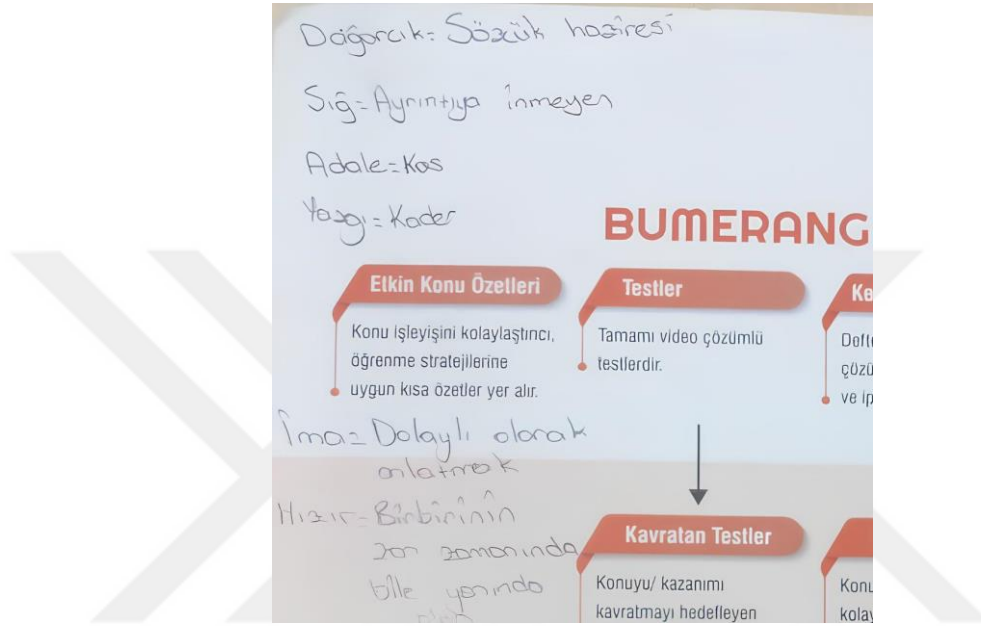 Dağarcık= Sözcük haziresi
Sığ= Ayrıntıya inmeyen
Adale= Kas
Yazgı= Kader
BUMERANG
Etkin Konu Özetleri
Konu işleyişini kolaylaştırıcı,
öğrenme stratejilerine
uygun kısa özetler yer alır.
Testler
Tamamı video çözümlü
testlerdir.
Ke
Defte
çözü
ve ip
İma= Dolaylı olarak
anlatmak
Hızır= Birbirinin
zor zamanında
bile yanında
Kavratan Testler
Konuyu/ kazanımı
kavratmayı hedefleyen
Konu
kolay